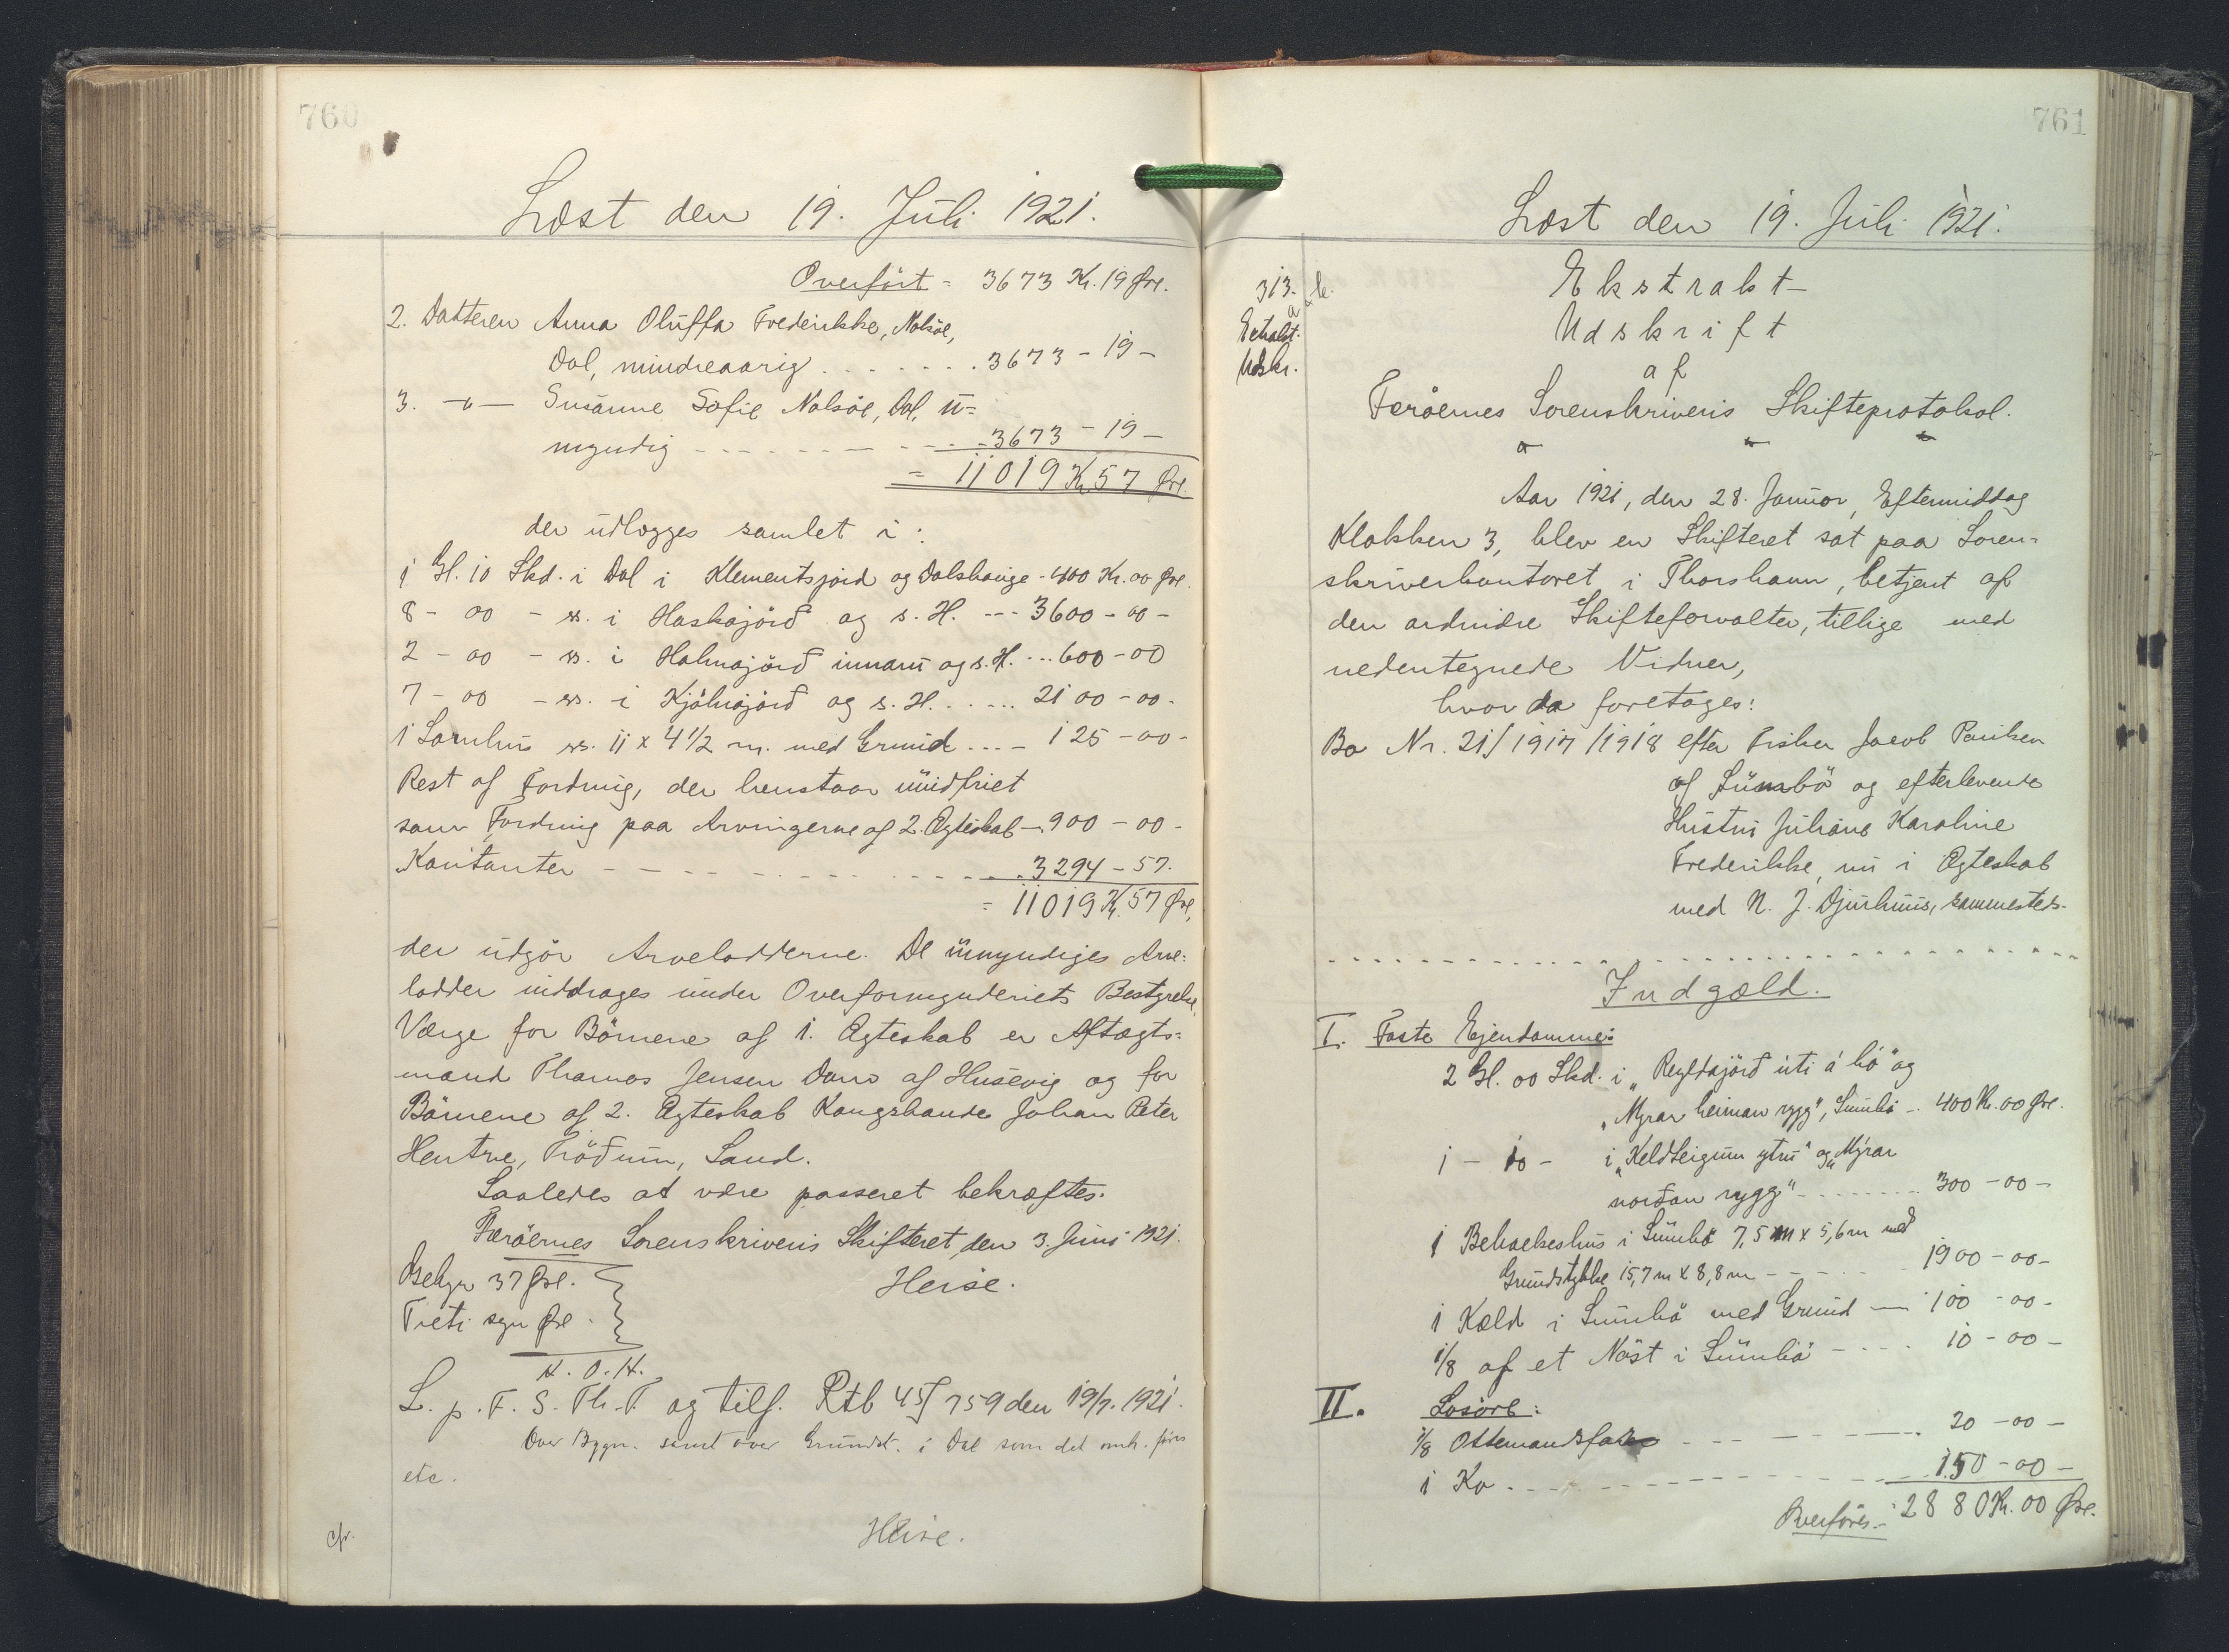 760
Læst den 19. Juli 1921.
Overført = 3673 Kr. 19 Øre.
2. Datteren Anna Oluffa Frederikke, Nolsöe,
Dal, mindreaarig . . . . . . . 3673 - 19 -
3. -"- Susanne Sofie Nolsöe, Dal, u=
myndig - - - - - - 3673 - 19 -
= 11019 Kr. 57 Øre
der udlægges samlet i:
1 Gl. 10 Skd. i Dal i Klementsjørd og Dalshauge - 400 Kr. 00 Øre.
8 - 00 - ss. i Haskajörð og s. H. --- 3600 - 00 -
2 - 00 - ss. i Halmajörð innaru og s. H. ... 600 - 00
7 - 00 - ss. i Kjølnajörð og s. H. ...... 2100 - 00 -
1 Lamhus ss. 11 x 4 1/2 m. med Grund ... - 125 - 00 -
Rest af Fordring, der henstaar uindfriet
som Fordring paa Arvingerne af 2. Ægteskab - 900 - 00 -
Kontanter - - - - - - - - - 3294 - 57.
= 11019 Kr. 57 Øre,
der udgør Arvelodderne. De umyndiges Arve=
lodder inddrages under Overformynderiets Bestyrelse,
Værge for Børnene af 1. Ægteskab er Aftægts=
mand Thomas Jensen Dam af Husevig og for
Børnene af 2. Ægteskab Kongsbonde Johan Peter
Hentze, Trøðum, Sand.
Saaledes at være passeret bekræftes.
Færøernes Sorenskriveris Skifteret, den 3. Juni 1921.
Heise.
Gebyr 37 Øre.
Treti syv Øre.
H. O. H.
L. p. F. S. Th. T. og tilf. Rtb 45/759 den 19/7. 1921.
Over Bygn. samt over Grundst. i Dal som det omh. føres
etc.
Heise.
cfr.
761
Læst den 19. Juli 1921.
313.
Extrakt
Udskr.
Ekstrakt-
Udskrift
af
Færøernes Sorenskriveris Skifteprotokol.
Aar 1921, den 28. Januar, Eftermiddag
Klokken 3, blev en Skifteret sat paa Soren=
skriverkontoret i Thorshavn, betjent af
den ordinære Skifteforvalter, tillige med
nedentegnede Vidner,
hvor da foretages:
Bo Nr. 21/1917/1918 efter Fisker Jacob Poulsen
af Sumbö og efterlevende
Hustru Juliane Karoline
Frederikke, nu i Ægteskab
med N. J. Djurhuus, sammesteds.
Indgæld.
I. Faste Ejendomme:
2 Gl. 00 Skd. i "Regldajörð úti á bö" og
"Myrar heiman rygg", Sumbö - 400 Kr. 00 Øre.
1 - 10 - i "Keldteigum ytru" og "Mýrar
norðan rygg" - - - - - 300 - 00 -
1 Beboelseshus i Sumbö 7,5 m x 5,6 m med
Grundstykke 15,7 m x 8,8 m - - - - 1900 - 00 -
1 Kæld i Sumbö med Grund - 100 - 00 -
1/8 af et Nøst i Sumbö - ... 10 - 00 -
II. Løsöre:
1/8 Ottemandsfar - - - - - 20 - 00 -
1 Ko - - - - - - - 150 - 00 -
Overføres - 2880 Kr. 00 Øre.